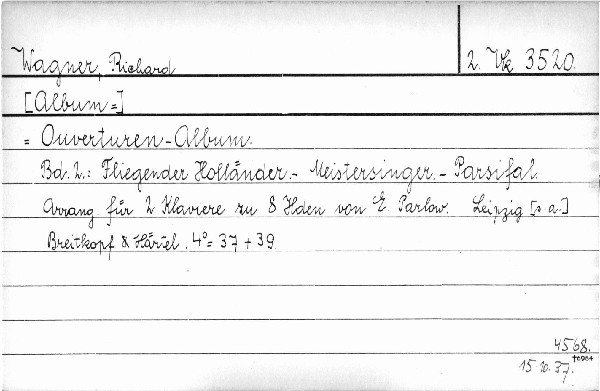 Wagner, Richard
2. Vk 3520.
[Album=]
= Ouverturen-Album.
Bd. 2.: Fliegender Holländer.- Meistersinger.- Parsifal.
Arrang für 2 Klaviere zu 8 Hden von E. Parlow. Leipzig [s. a.]
Breitkopf & Härtel. 4°= 37 + 39
4568.
15 10. 37.